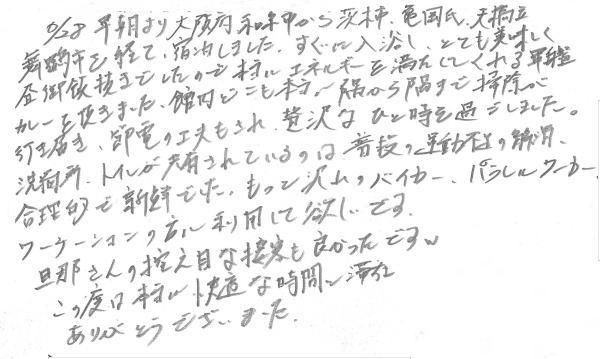 10/28 早朝より大阪府和泉市から茨木、亀岡、天橋立
舞鶴市を経て、宿泊しました。すぐに入浴し、とても美味しく
昼御飯抜きでしたので本当にエネルギーを満たしてくれる軍艦
カレーを頂きました。館内どこも本当に隅から隅まで掃除が
行き届き、節電の工夫もされ、贅沢なひと時を過ごしました。
洗面所、トイレが共有されているのは普段の運動不足の解消、
合理的で新鮮でした。もっと沢山のバイカー、パラレルワーカー
ワーケーションの方に利用して欲しいです。
旦那さんの控え目な接客も良かったです。
この度は本当に快適な時間を
ありがとうございました。